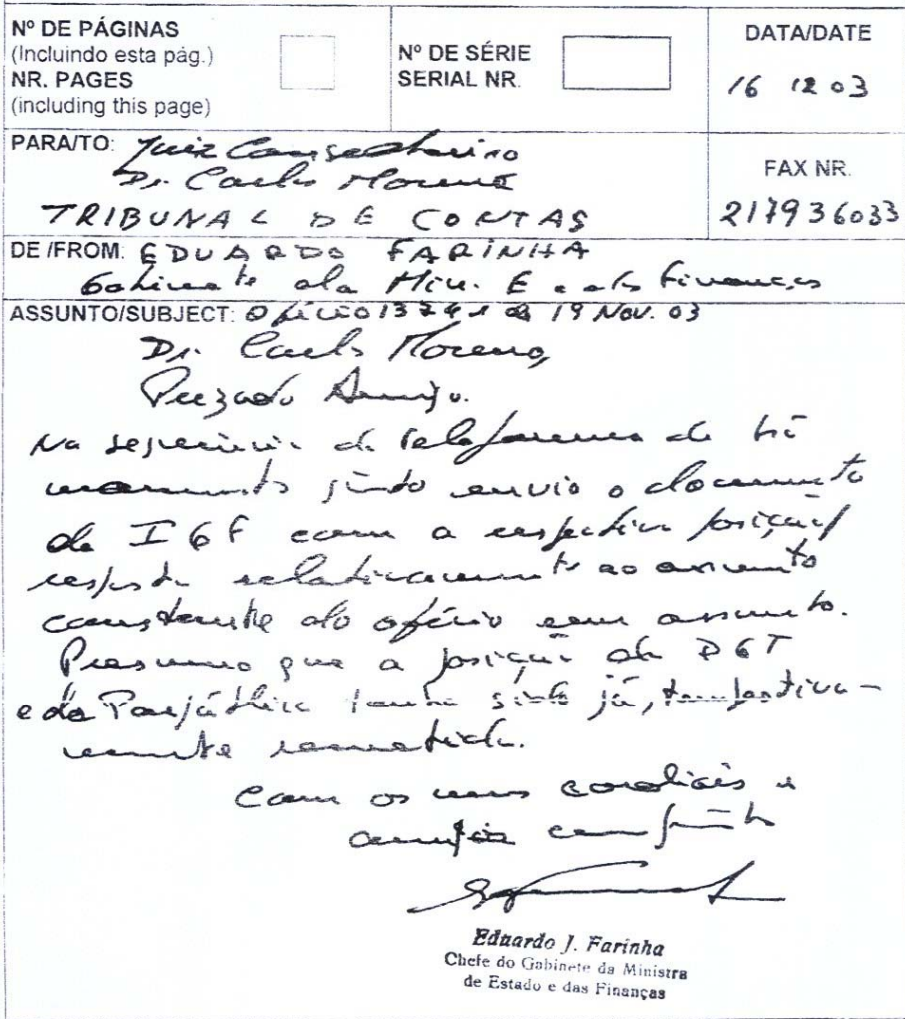 Nº DE PÁGINAS
(Incluindo esta pág.)
NR. PAGES
(including this page)
Nº DE SÉRIE
SERIAL NR.
DATA/DATE
16 12 03
PARA/TO: Juiz Conselheiro
Dr. Carlos Moreno
TRIBUNAL DE CONTAS
FAX NR.
217936033
DE /FROM: EDUARDO FARINHA
Gabinete da Min. E. e das Finanças
ASSUNTO/SUBJECT: Ofício 13741 de 19 Nov. 03
Dr. Carlos Moreno,
Prezado Amigo.
Na sequência do telefonema de há
momentos junto envio o documento
da IGF com a respectiva posição/
resposta relativamente ao assunto
constante do ofício em assunto.
Presumo que a posição da DGT
e da Parpública tenha sido já, tempestiva-
mente remetida.
Com os meus cordiais e
amigos cumprimentos
Eduardo J. Farinha
Chefe do Gabinete da Ministra
de Estado e das Finanças